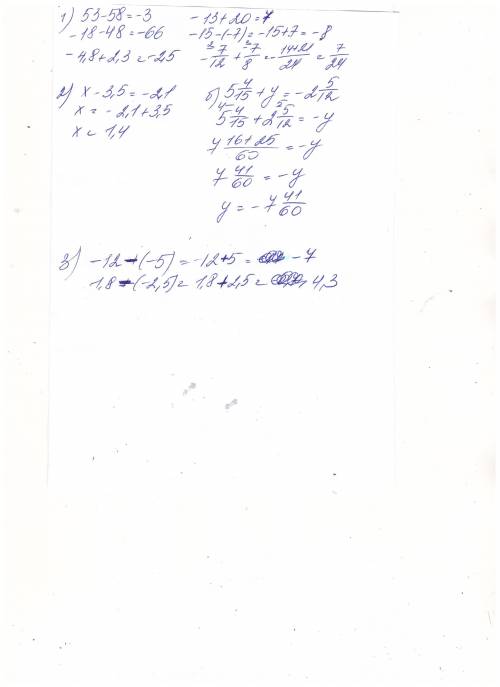 1) 53-58=-3    -13+20=7
-18-48=-66    -15-(-7)=-15+7=-8
-4,8+2,3=-25    -7/12+7/8=-14+21/24=7/24
2) x-3,5=-2,1    б) 5 4/15+y=-2 5/12
x=-2,1+3,5    5 4/15+2 5/12=-y
x=1,4    7 16+25/60=-y
7 41/60=-y
y=-7 41/60
3) -12-(-5)=-12+5=-7
1,8-(-2,5)=1,8+2,5=4,3